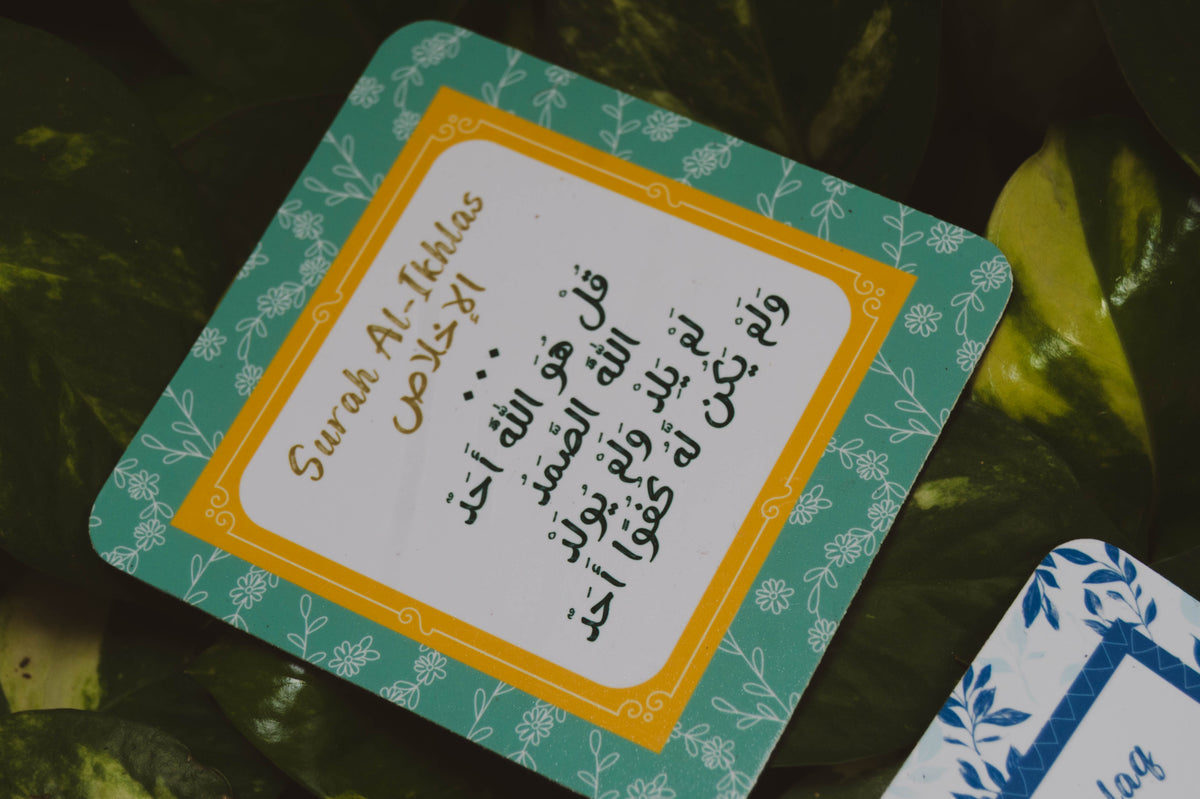 Surah Al-Ikhlas
الإخلاص
قُلْ هُوَ اللَّهُ أَحَدٌ
اللَّهُ الصَّمَدُ
لَمْ يَلِدْ وَلَمْ يُولَدْ
وَلَمْ يَكُن لَّهُ كُفُوًا أَحَدٌ